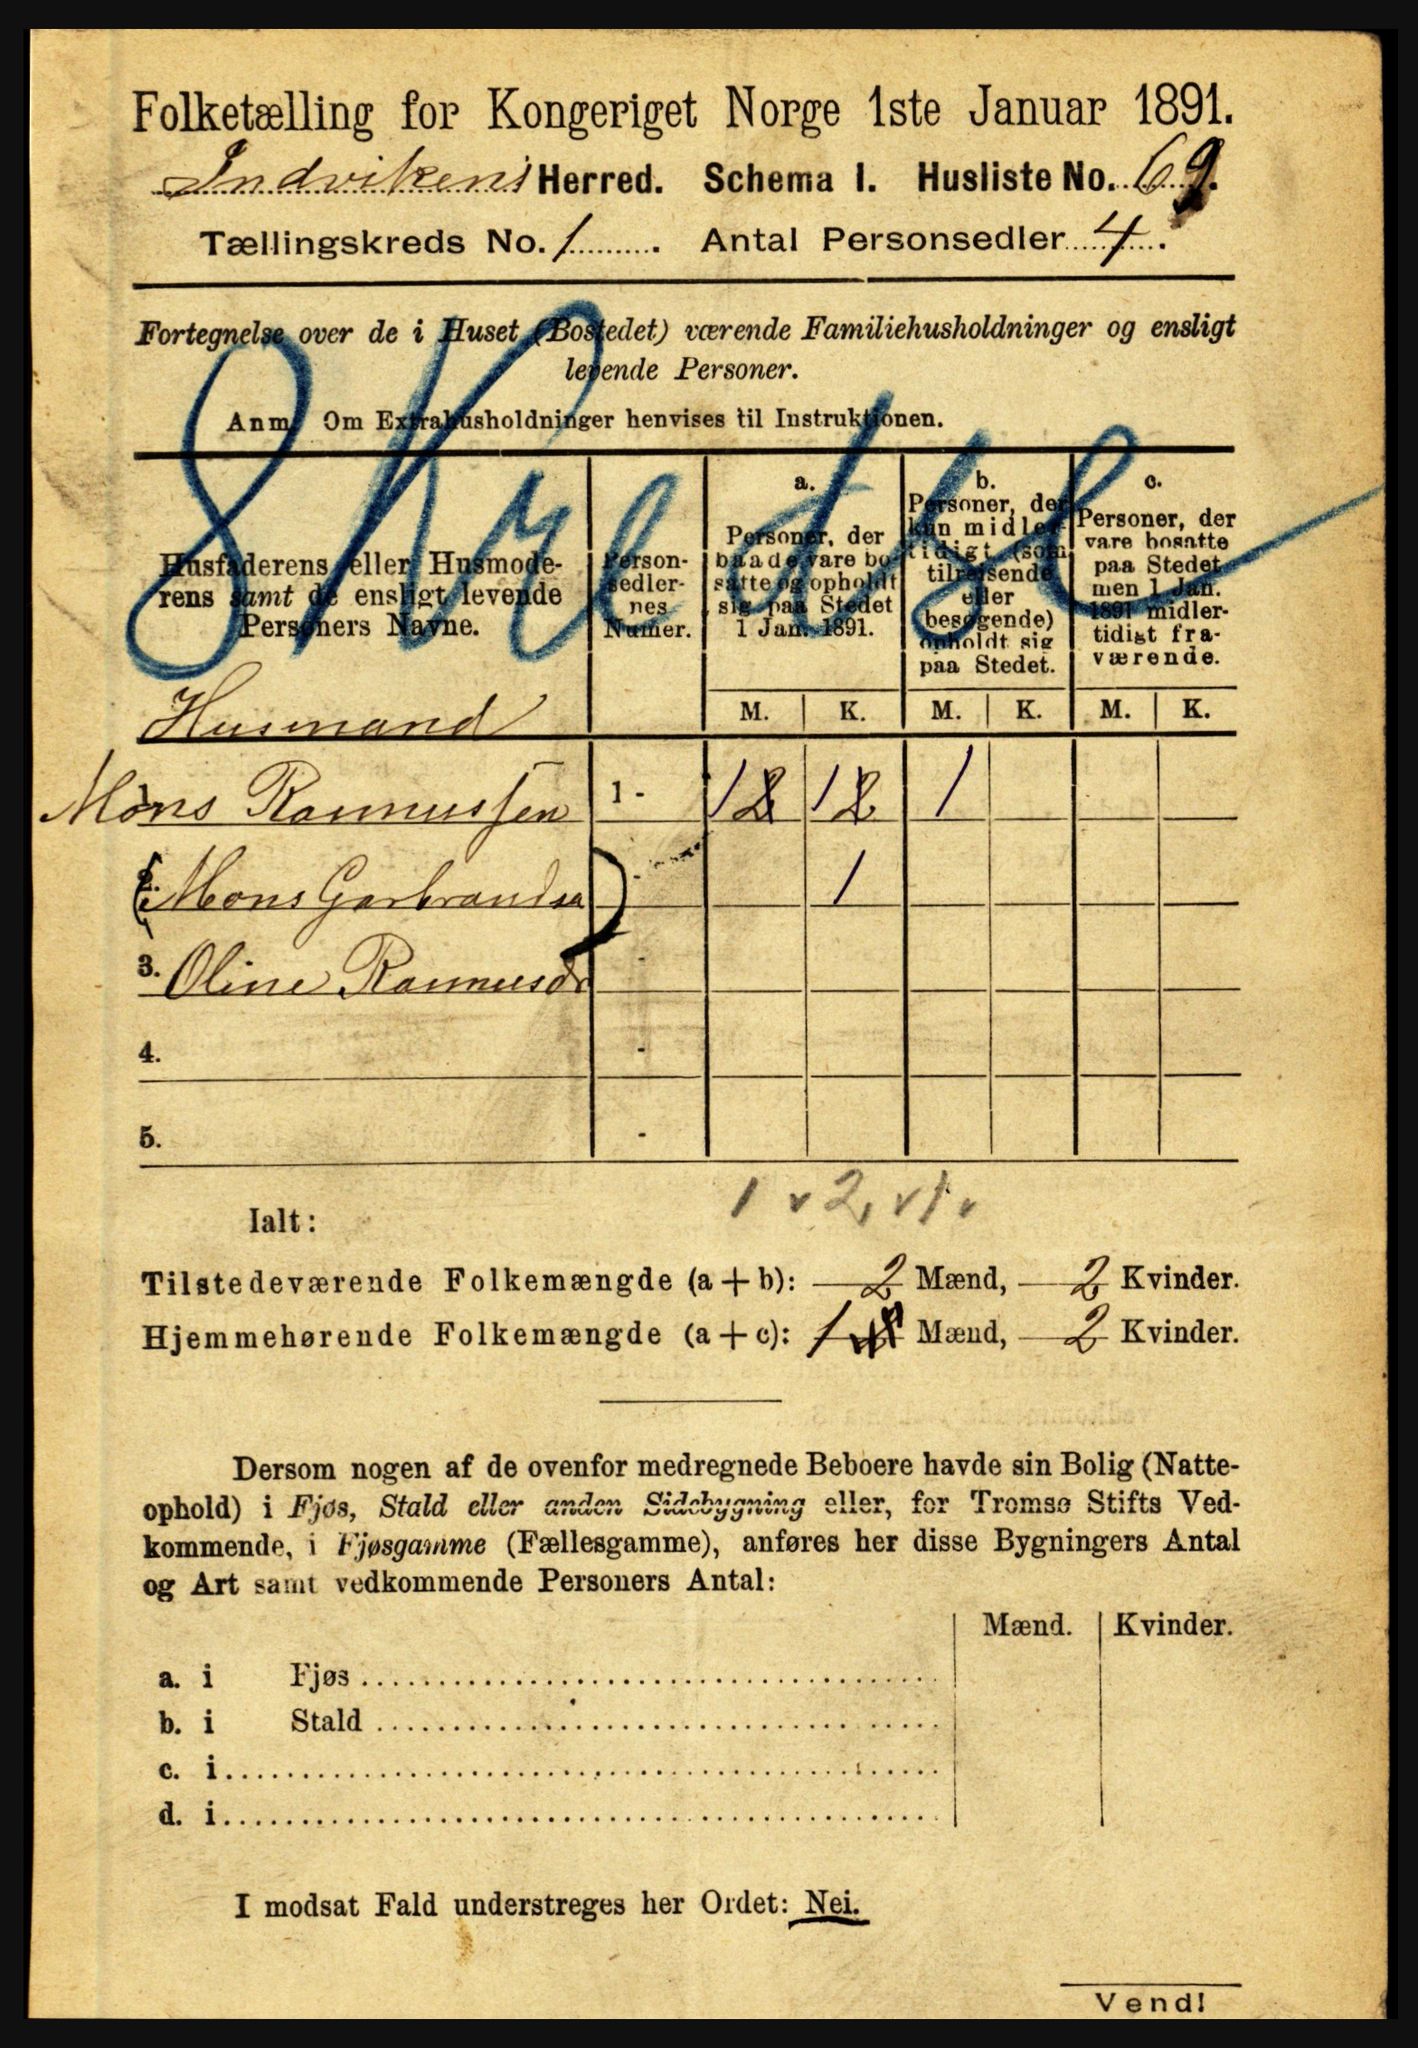 Folketælling for Kongeriget Norge 1ste Januar 1891.
Indvikens Herred. Schema I. Husliste No. 69.
Tællingskreds No. 1. Antal Personsedler 4.
Fortegnelse over de i Huset (Bostedet) værende Familiehusholdninger og ensligt
levende Personer.
Anm. Om Extrahusholdninger henvises til Instruktionen.
8 Kreds
Husfaderens eller Husmode-
rens samt de ensligt levende
Personers Navne.
Person-
sedler-
nes
Numer.
a.
Personer, der
baade vare bo-
satte og opholdt
sig paa Stedet
1 Jan. 1891.
b.
Personer, der
kun midler-
tidigt (som
tilreisende
eller
besøgende)
opholdt sig
paa Stedet.
c.
Personer, der
vare bosatte
paa Stedet
men 1 Jan.
1891 midler-
tidigt fra-
værende.
M. K. M. K. M. K.
Husmand
Mons Rasmussen 1 - 1 2 1 2 1
2. Mons Garbrands - 1
3. Oline Rasmusdr -
4. -
5. -
1 v 2, v 1 v
Ialt:
Tilstedeværende Folkemængde (a + b): 2 Mænd, 2 Kvinder.
Hjemmehørende Folkemængde (a + c): 1 Mænd, 2 Kvinder.
Dersom nogen af de ovenfor medregnede Beboere havde sin Bolig (Natte-
ophold) i Fjøs, Stald eller anden Sidebygning eller, for Tromsø Stifts Ved-
kommende, i Fjøsgamme (Fællesgamme), anføres her disse Bygningers Antal
og Art samt vedkommende Personers Antal:
Mænd. Kvinder.
a. i Fjøs
b. i Stald
c. i
d. i
I modsat Fald understreges her Ordet: Nei.
Vend!